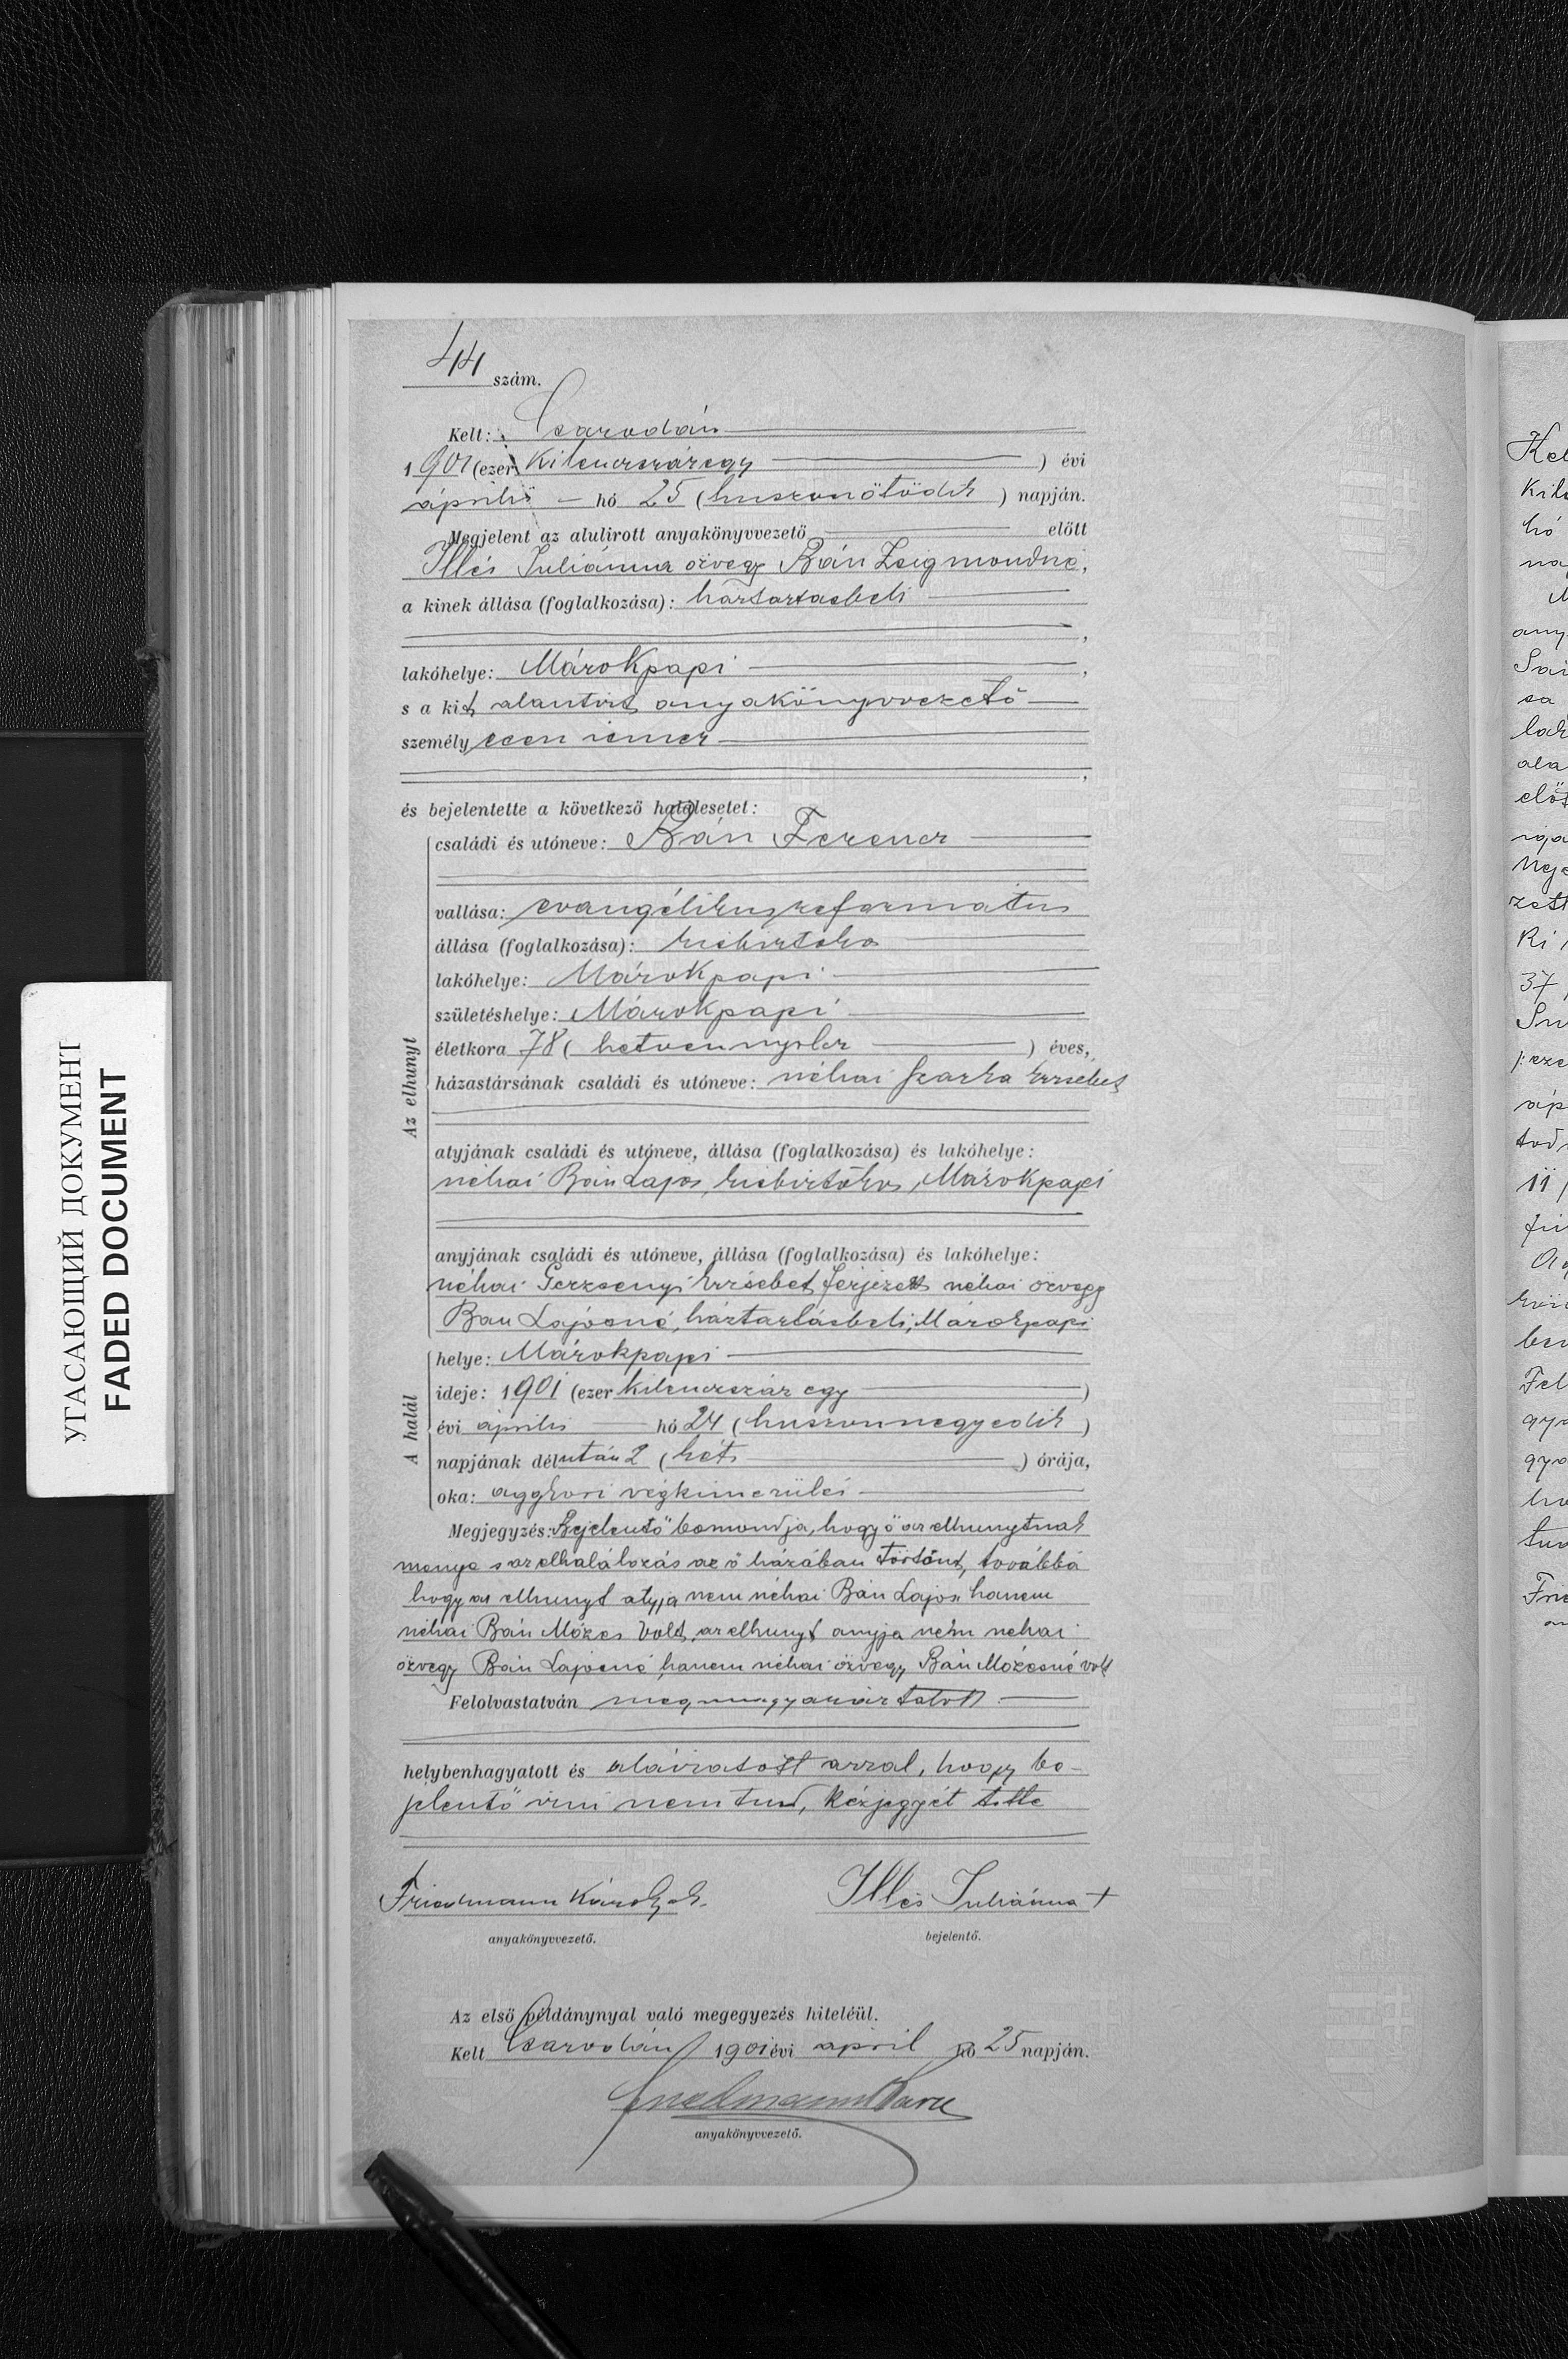 44 szám.
Kelt: Csarodán
1901 (ezer kilencszázegy ) évi
április hó 25 (huszonötödik ) napján.
Megjelent az alulirott anyakönyvvezető előtt
Illés Juliánna özvegy Bán Zsigmondné,
a kinek állása (foglalkozása): háztartásbeli
lakóhelye: Márokpapi
s a kit alantirt anyakönyvvezető
személyesen ismer
és bejelentette a következő halálesetet:
Az elhunyt
családi és utóneve: Bán Ferencz
vallása: evangélikus református
állása (foglalkozása): kisbirtokos
lakóhelye: Márokpapi
születéshelye: Márokpapi
életkora 78 ( hetvennyolcz ) éves,
házastársának családi és utóneve: néhai Szarka Erzsébet
atyjának családi és utóneve, állása (foglalkozása) és lakóhelye:
néhai Bán Lajos, kisbirtokos, Márokpapi
anyjának családi és utóneve, állása (foglalkozása) és lakóhelye:
néhai Gerzsenyi Erzsébet férjezett néhai özvegy
Bán Lajosné, háztartásbeli, Márokpapi
A halál
helye: Márokpapi
ideje: 1901 (ezer kilenczszáz egy )
évi április hó 24 (huszonnegyedik )
napjának délután 2 ( két ) órája,
oka: aggkori végkimerülés
Megjegyzés: Bejelentő bemondja, hogy ő az elhunytnak
menye s az elhalálozás az ő házában történt, továbbá
hogy az elhunyt atyja nem néhai Bán Lajos, hanem
néhai Bán Mózes volt, az elhunyt anyja nem néhai
özvegy Bán Lajosné, hanem néhai özvegy Bán Mózesné volt
Felolvastatván megmagyaráztatott
helybenhagyatott és aláiratott azzal, hogy be-
jelentő irni nem tud, kézjegyét tette
Friedmann Károly Illés Juliánna +
anyakönyvvezető. bejelentő.
Az első példánynyal való megegyezés hiteléül.
Kelt Csarodán 1901 évi április hó 25 napján.
Friedmann Károly
anyakönyvvezető.
УГАСАЮЩИЙ ДОКУМЕНТ
FADED DOCUMENT